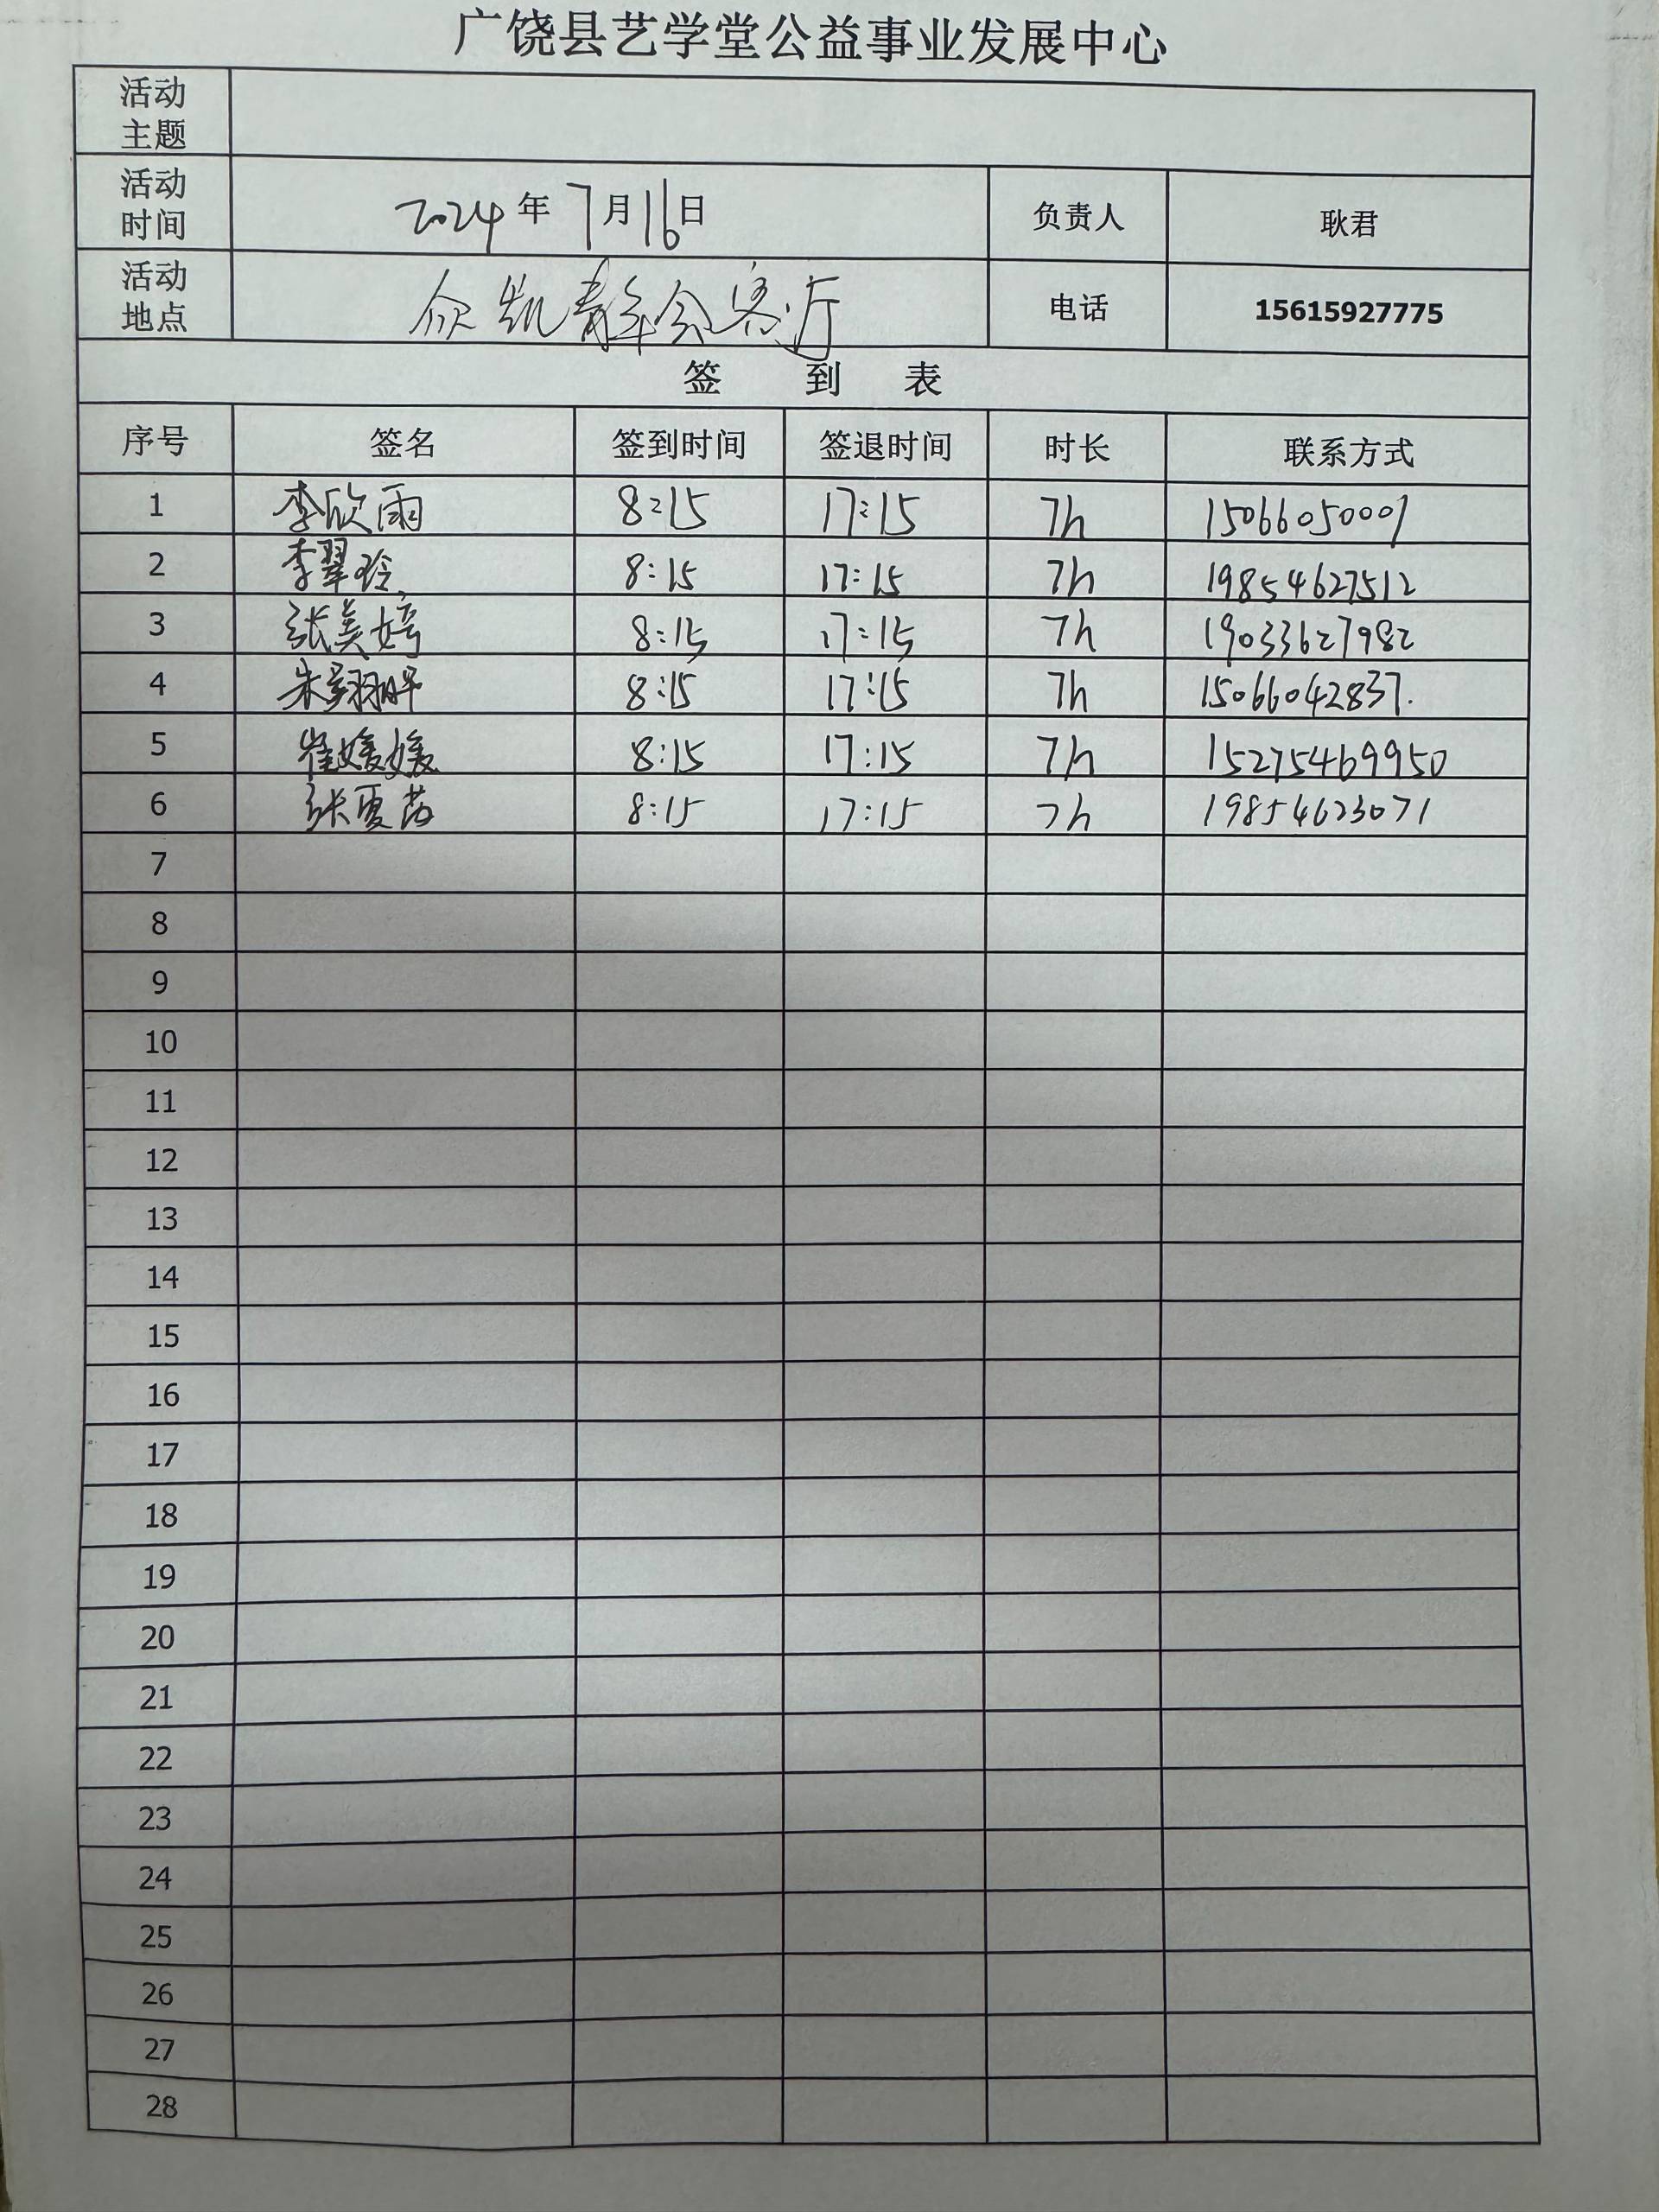 广饶县艺学堂公益事业发展中心
活动主题
活动时间 2024年7月16日 负责人 耿君
活动地点 众凯青年会客厅 电话 15615927775
签 到 表
序号 签名 签到时间 签退时间 时长 联系方式
1 李欣雨 8:15 17:15 7h 15066050001
2 李翠玲 8:15 17:15 7h 19854627512
3 张美婷 8:15 17:15 7h 19033627982
4 朱翙 8:15 17:15 7h 15066042837.
5 崔媛媛 8:15 17:15 7h 15275469950
6 张夏 8:15 17:15 7h 19854623071
7
8
9
10
11
12
13
14
15
16
17
18
19
20
21
22
23
24
25
26
27
28